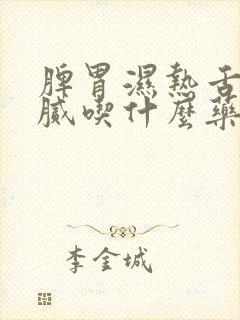 脾胃濕熱舌
膩喫什麼藥
李金城